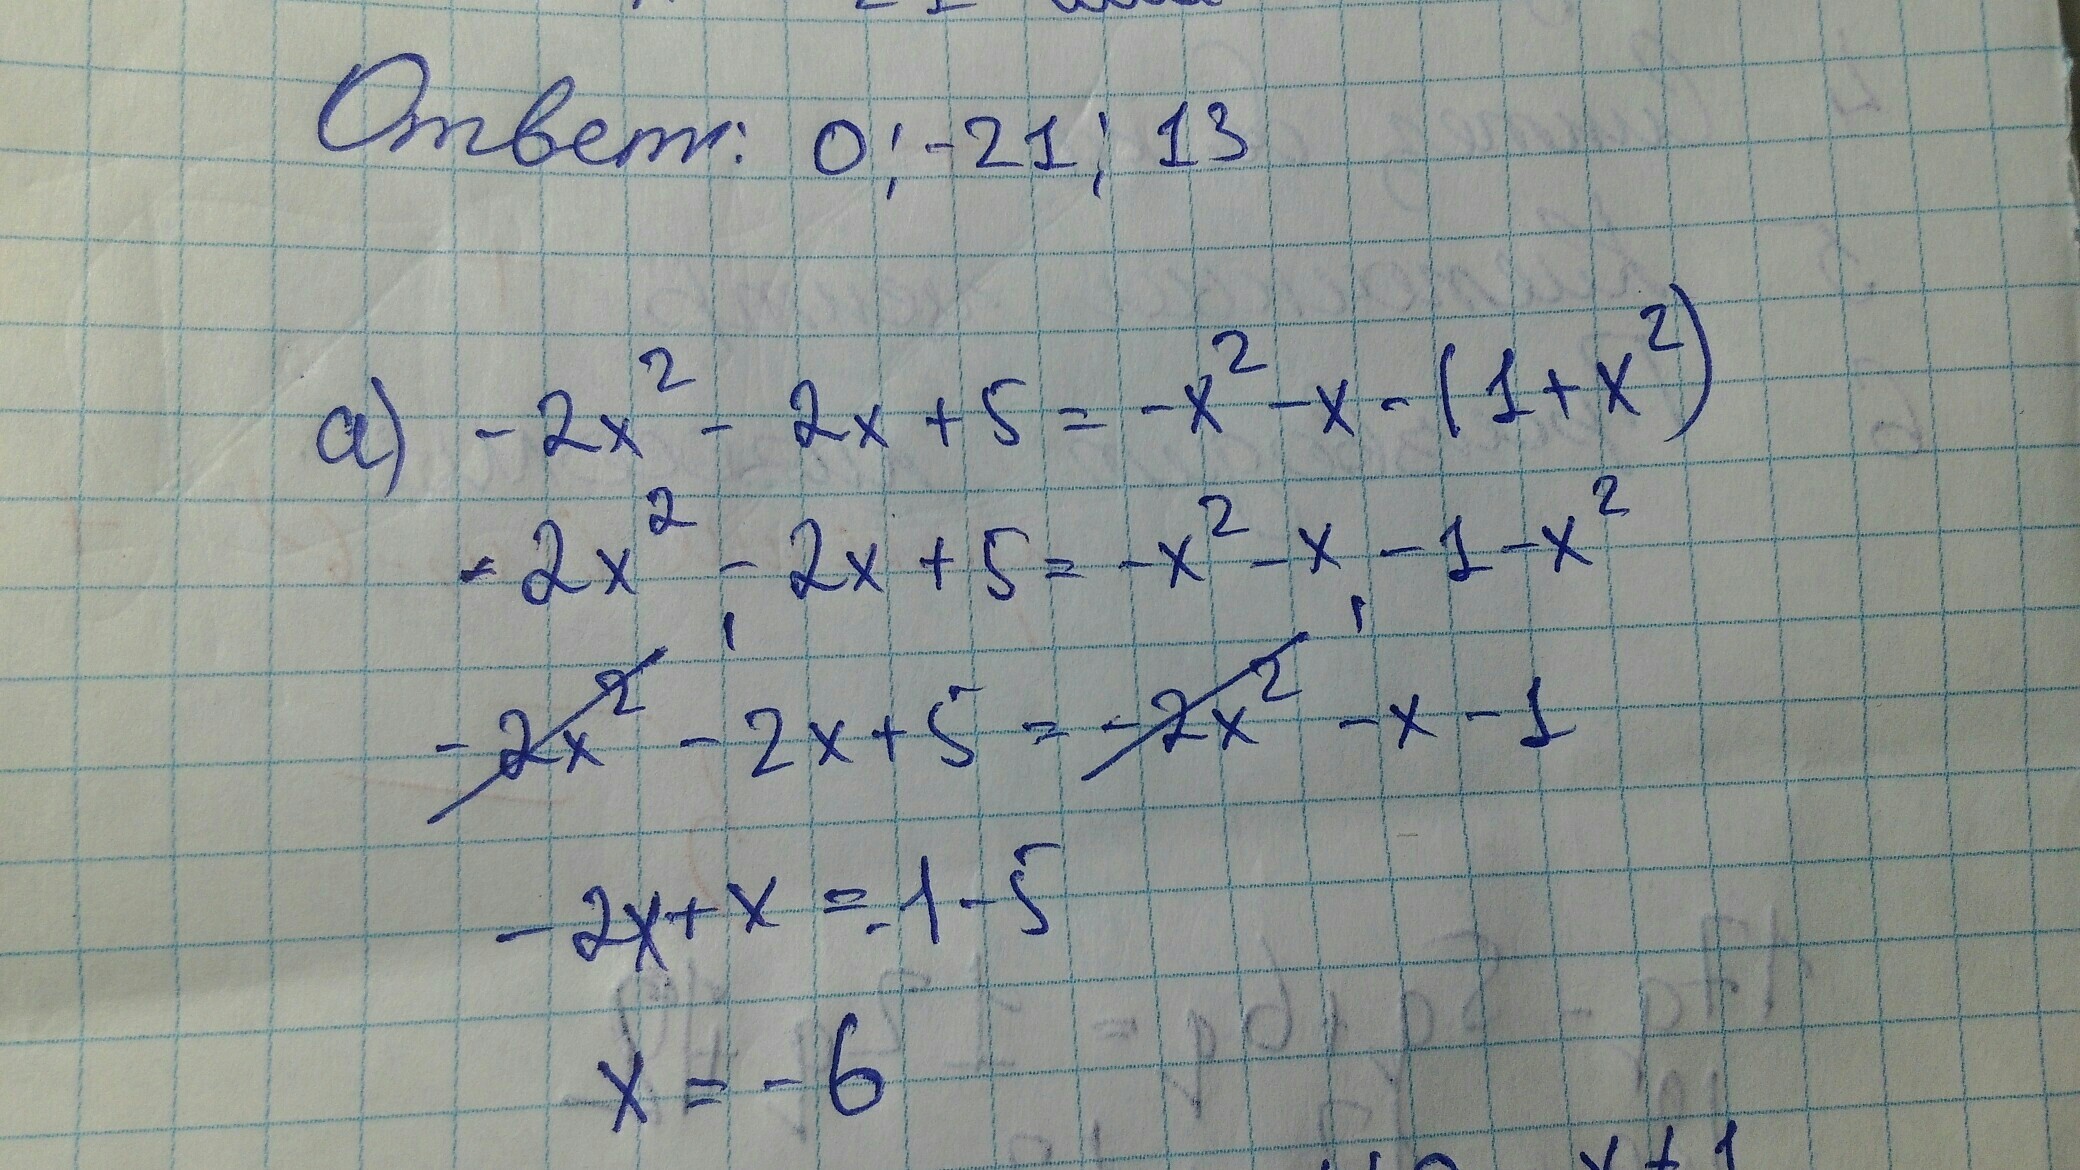 Ответ: 0; -21; 13
а) -2x² - 2x + 5 = -x² - x - (1 + x²)
-2x² - 2x + 5 = -x² - x - 1 - x²
-2x² - 2x + 5 = -2x² - x - 1
-2x + x = -1 - 5
x = -6
x + 1